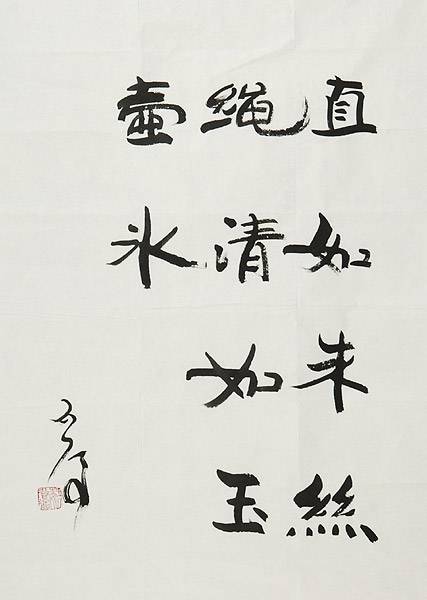 直如朱絲
绳清如玉
壺氷